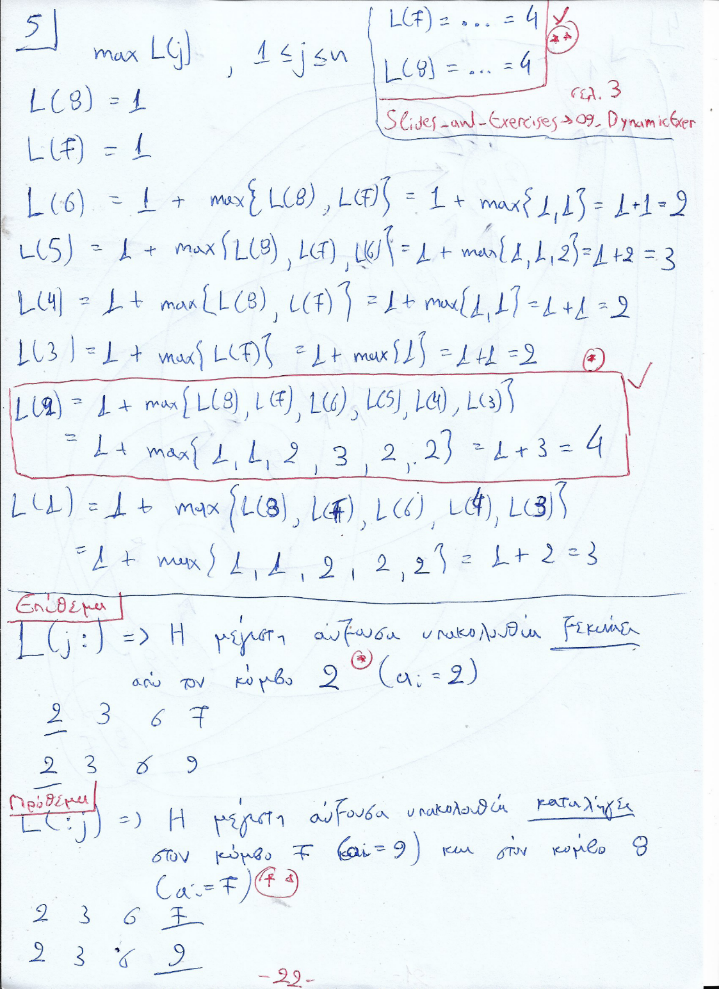 5
max L(j) , 1 ≤ j ≤ n
L(7) = ... = 4 ✓
**
L(8) = ... = 4
σελ. 3
Slides_and_Exercises → 09_DynamicExer
L(8) = 1
L(7) = 1
L(6) = 1 + max{L(8), L(7)} = 1 + max{1,1} = 1+1 = 2
L(5) = 1 + max{L(8), L(7), L(6)} = 1 + max{1,1,2} = 1+2 = 3
L(4) = 1 + max{L(8), L(7)} = 1 + max{1,1} = 1+1 = 2
L(3) = 1 + max{L(7)} = 1 + max{1} = 1+1 = 2
* ✓
L(2) = 1 + max{L(8), L(7), L(6), L(5), L(4), L(3)}
= 1 + max{1, 1, 2, 3, 2, 2} = 1 + 3 = 4
L(1) = 1 + max{L(8), L(7), L(6), L(4), L(3)}
= 1 + max{1, 1, 2, 2, 2} = 1 + 2 = 3
Επίθεμα
L(j:) => Η μέγιστη αύξουσα υπακολουθία ξεκινάει
από τον κόμβο 2 * (ai = 2)
2 3 6 7
2 3 6 9
Πρόθεμα
L(:j) => Η μέγιστη αύξουσα υπακολουθία καταλήγει
στον κόμβο 7 (ai = 9) και στον κόμβο 8
(ai = 7) **
2 3 6 7
2 3 6 9
-22-